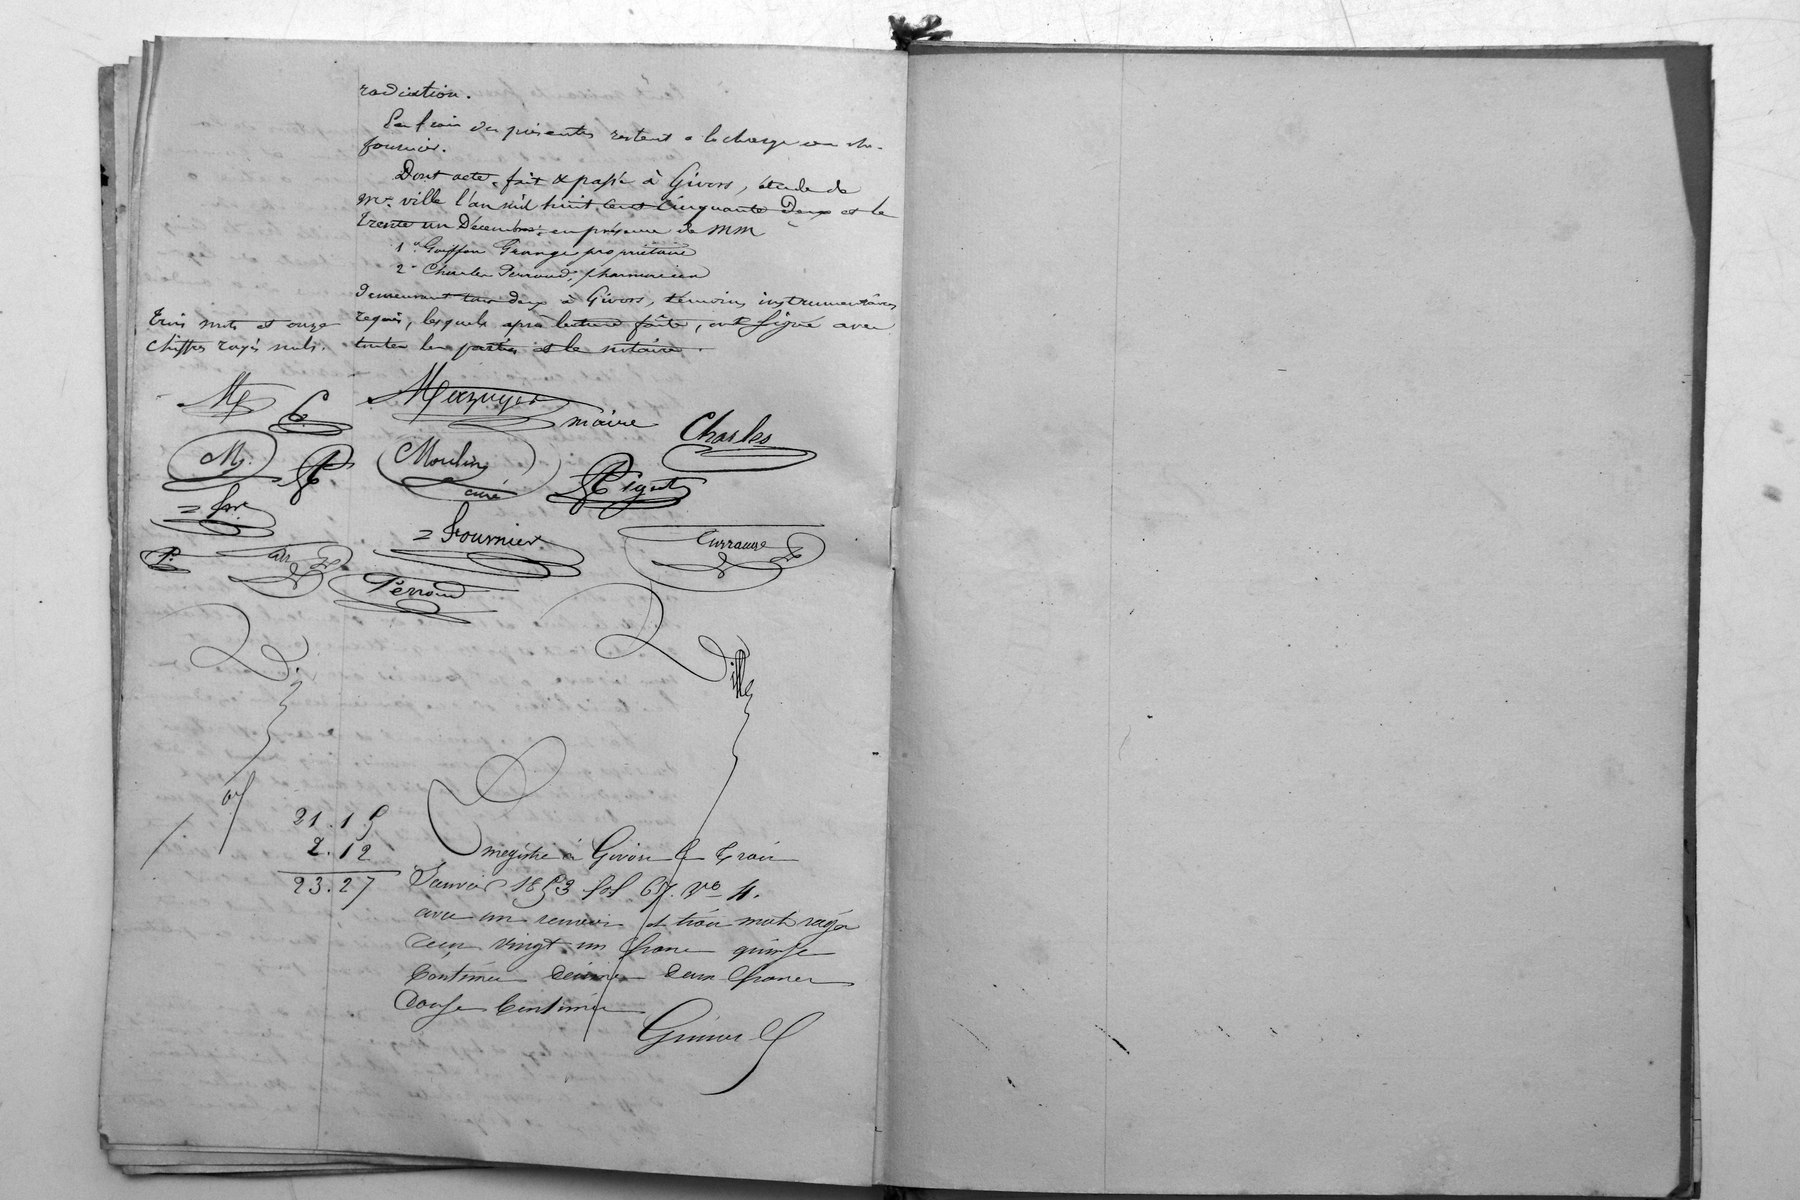 radiation.
Les frais des présentes restent a la charge de Mr
fournier.
Dont acte, fait & passé à Givors, étude de
Me. ville l'an mil huit cent cinquante deux et le
trente un Décembre, en présence de MM
1° Goiffon Grange propriétaire
2° Charles Perroud, pharmacien
demeurant tous deux à Givors, témoins instrumentaires
requis, lesquels après lecture faite, ont signé avec
toutes les parties et le notaire.
trois mots et onze
chiffres rayés nuls.
M
Mazuyer
maire
Charles
M.
P
Moulin
curé
Pigut
= for
= Fournier
P.
Perroud
V
Ville
21.15
2.12
23.27
Enregistré à Givors le trois
Janvier 1853 fol 67. Vo 4.
avec un renvoi et trois mots rayés
reçu vingt un francs quinze
Centimes decime deux francs
douze Centimes